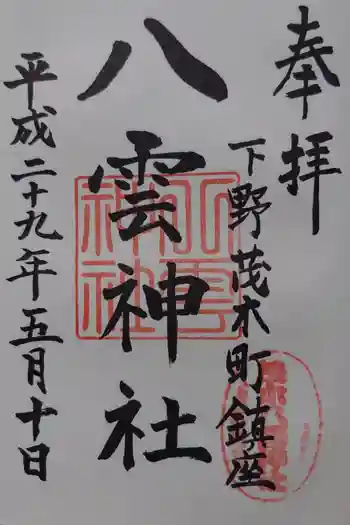 奉拝
下野茂木町鎮座
八雲神社
平成二十九年五月十日
八雲神社